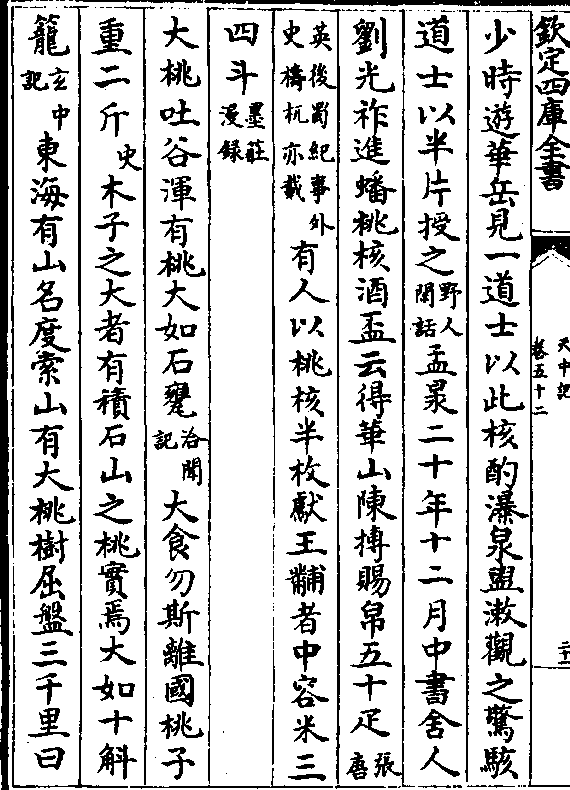 欽定四庫全書
天中記
卷五十二
少時遊華岳見一道士以此核酌瀑泉盥漱觀之驚駭
道士以半片授之野人閒話孟㫤二十年十二月中書舍人
劉光祚進蟠桃核酒盃云得華山陳摶賜帛五十疋張唐
英後蜀紀事外史檮杌亦載有人以桃核半枚獻王黼者中容米三
四斗墨莊漫錄
大桃吐谷渾有桃大如石甕洽聞記大食勿斯離國桃子
重二斤史木子之大者有積石山之桃實焉大如十斛
籠玄中記東海有山名度索山有大桃樹屈盤三千里曰